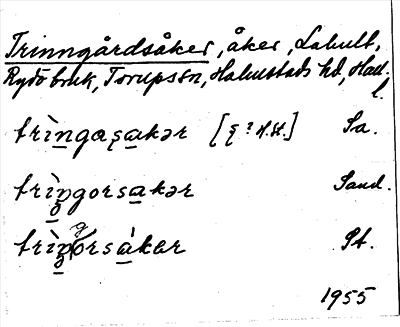 Trinngårdsåker, åker, Lahult,
Rydö bruk, Torupssn, Halmstads hd, Hall.
l.
trìngaşakər [ş ? H.St.] Sa.
trìngorsakər Sand.
trìŋgorsàkər St.
1955